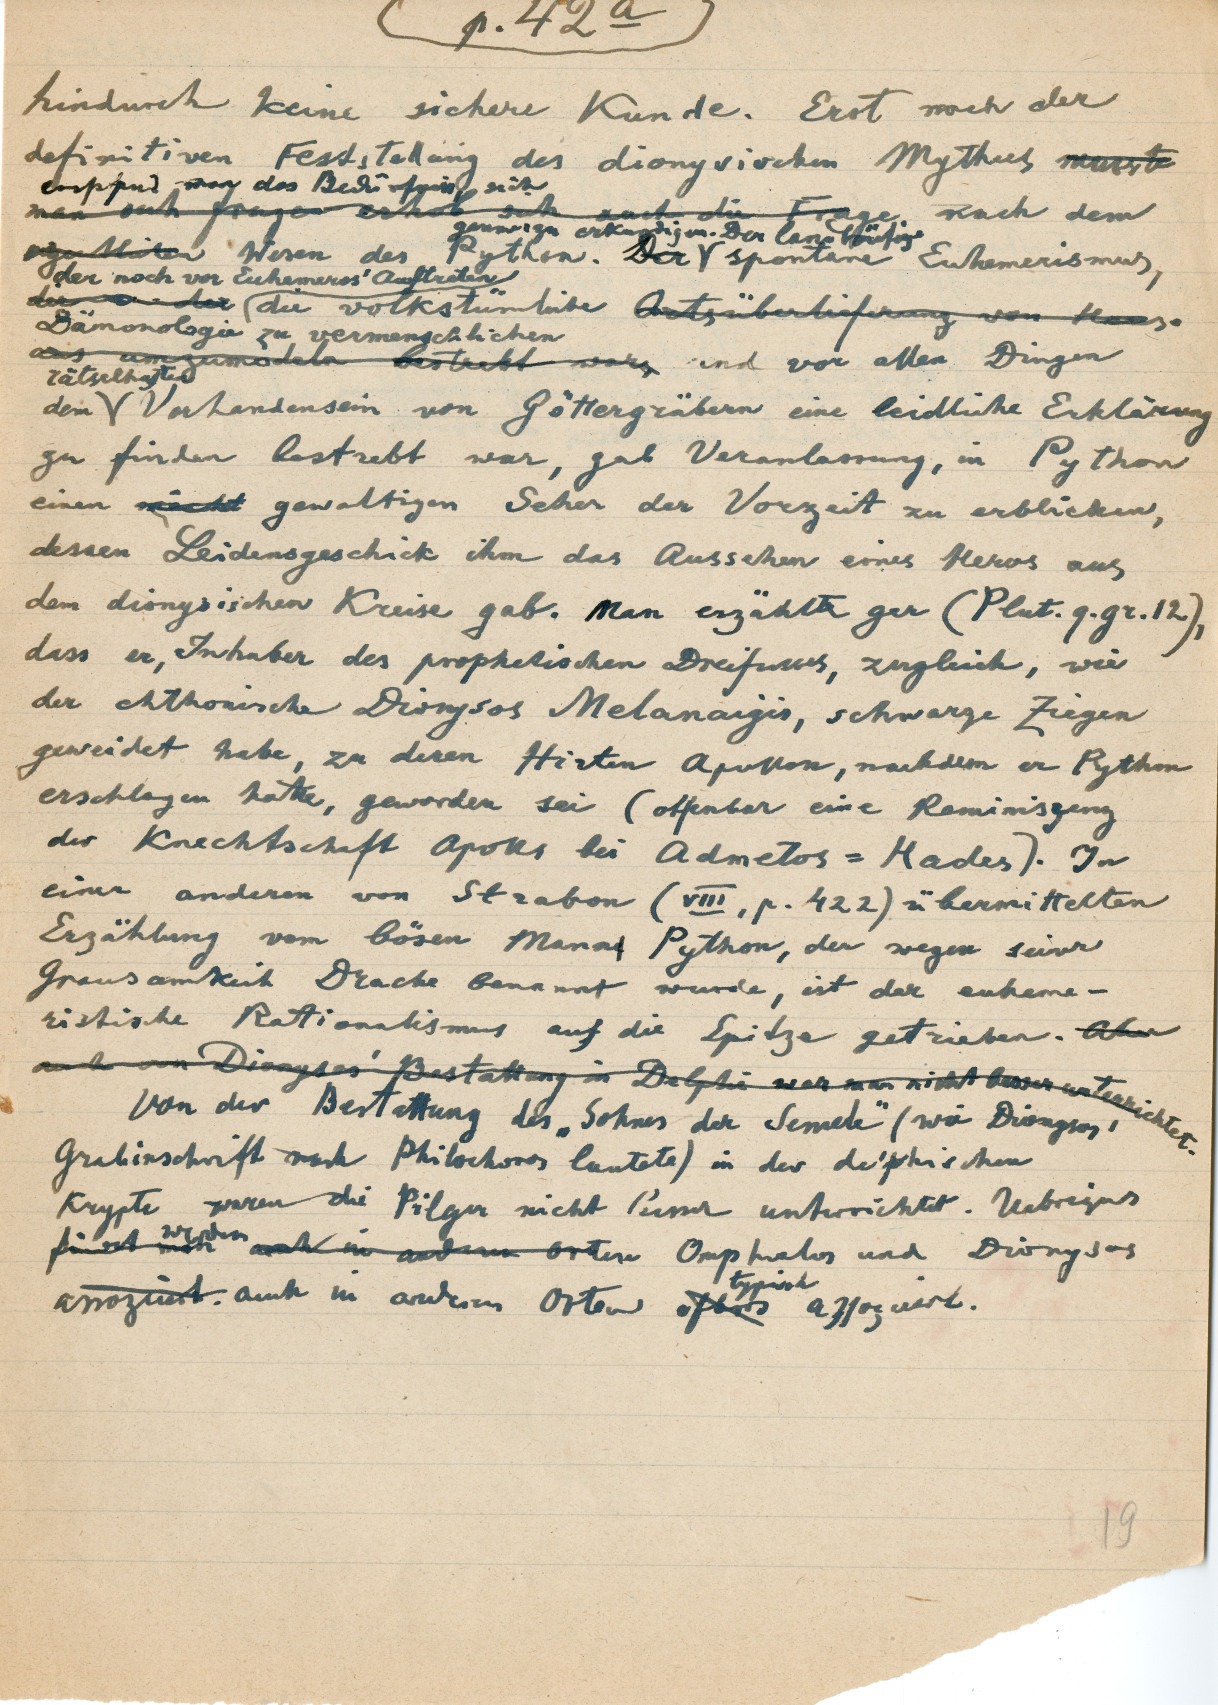 p. 42a
hindurch keine sichere Kunde. Erst nach der
definitiven Feststellung des dionysischen Mythus musste
empfand man das Bedürfnis, sich
man sich fragen erhob sich auch die Frage nach dem
genauer zu erkundigen. Der landläufige
Wesen des Python. Der spontane Euhemerismus,
der noch vor Euhemeros' Auftreten
die volkstümliche Ortsüberlieferung von
Dämonologie zu vermenschlichen
umzumodeln bestrebt war, und vor allen Dingen
rätselhaften
dem Vorhandensein von Göttergräbern eine leidliche Erklärung
zu finden bestrebt war, gab Veranlassung, in Python
einen nicht gewaltigen Seher der Vorzeit zu erblicken,
dessen Leidensgeschick ihm das Aussehen eines Heros aus
dem dionysischen Kreise gab. Man erzählte gar (Plut. q. gr. 12),
dass er, Inhaber des prophetischen Dreifusses, zugleich, wie
der chthonische Dionysos Melanaigis, schwarze Ziegen
geweidet habe, zu deren Hirten Apollon, nachdem er Python
erschlagen hatte, geworden sei (offenbar eine Reminiszenz
der Knechtschaft Apolls bei Admetos = Hades). In
einer anderen von Strabon (VIII, p. 422) übermittelten
Erzählung vom bösen Mann Python, der wegen seiner
Grausamkeit Drache benannt wurde, ist der euheme-
ristische Rationalismus auf die Spitze getrieben. Aber
auch von Dionysos' Bestattung in Delphi war man nicht besser unterrichtet.
Von der Bestattung des „Sohnes der Semele" (wie Dionysos'
Grabinschrift nach Philochoros lautete) in der delphischen
Krypte waren die Pilger nicht besser unterrichtet. Uebrigens
werden
findet man auch in anderen Orten Omphalos und Dionysos
assoziiert. auch in anderen Orten
typisch
öfters assoziiert.
19